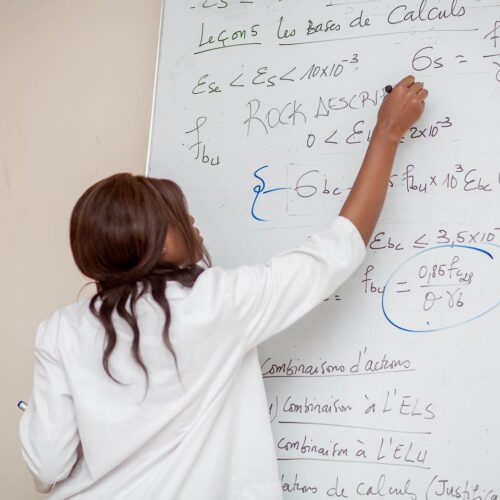 ES =
Leçon 5 Les Bases de Calculs
Ese < Es < 10x10⁻³ 6s =
ROCK DESCRI
fbu 0 < Eb 2x10⁻³
6bc fbu x 10³ Ebc
Ebc ≤ 3,5x10⁻
fbu = 0,85 fc28 / θ γb
Combinaisons d'actions
) Combinaison à l'ELS
Combinaison à l'ELU
ations de calculs (Justif